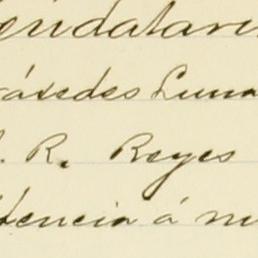 endatari
ráxedes Luna
. R. Reyes
dencia á m